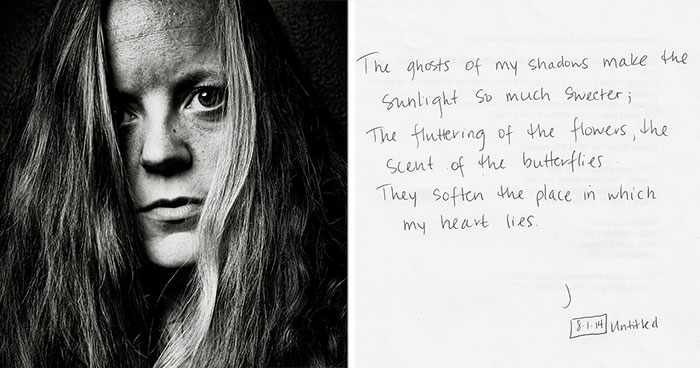 The ghosts of my shadows make the
sunlight so much sweeter;
The fluttering of the flowers, the
scent of the butterflies.
They soften the place in which
my heart lies.
8.1.14 Untitled